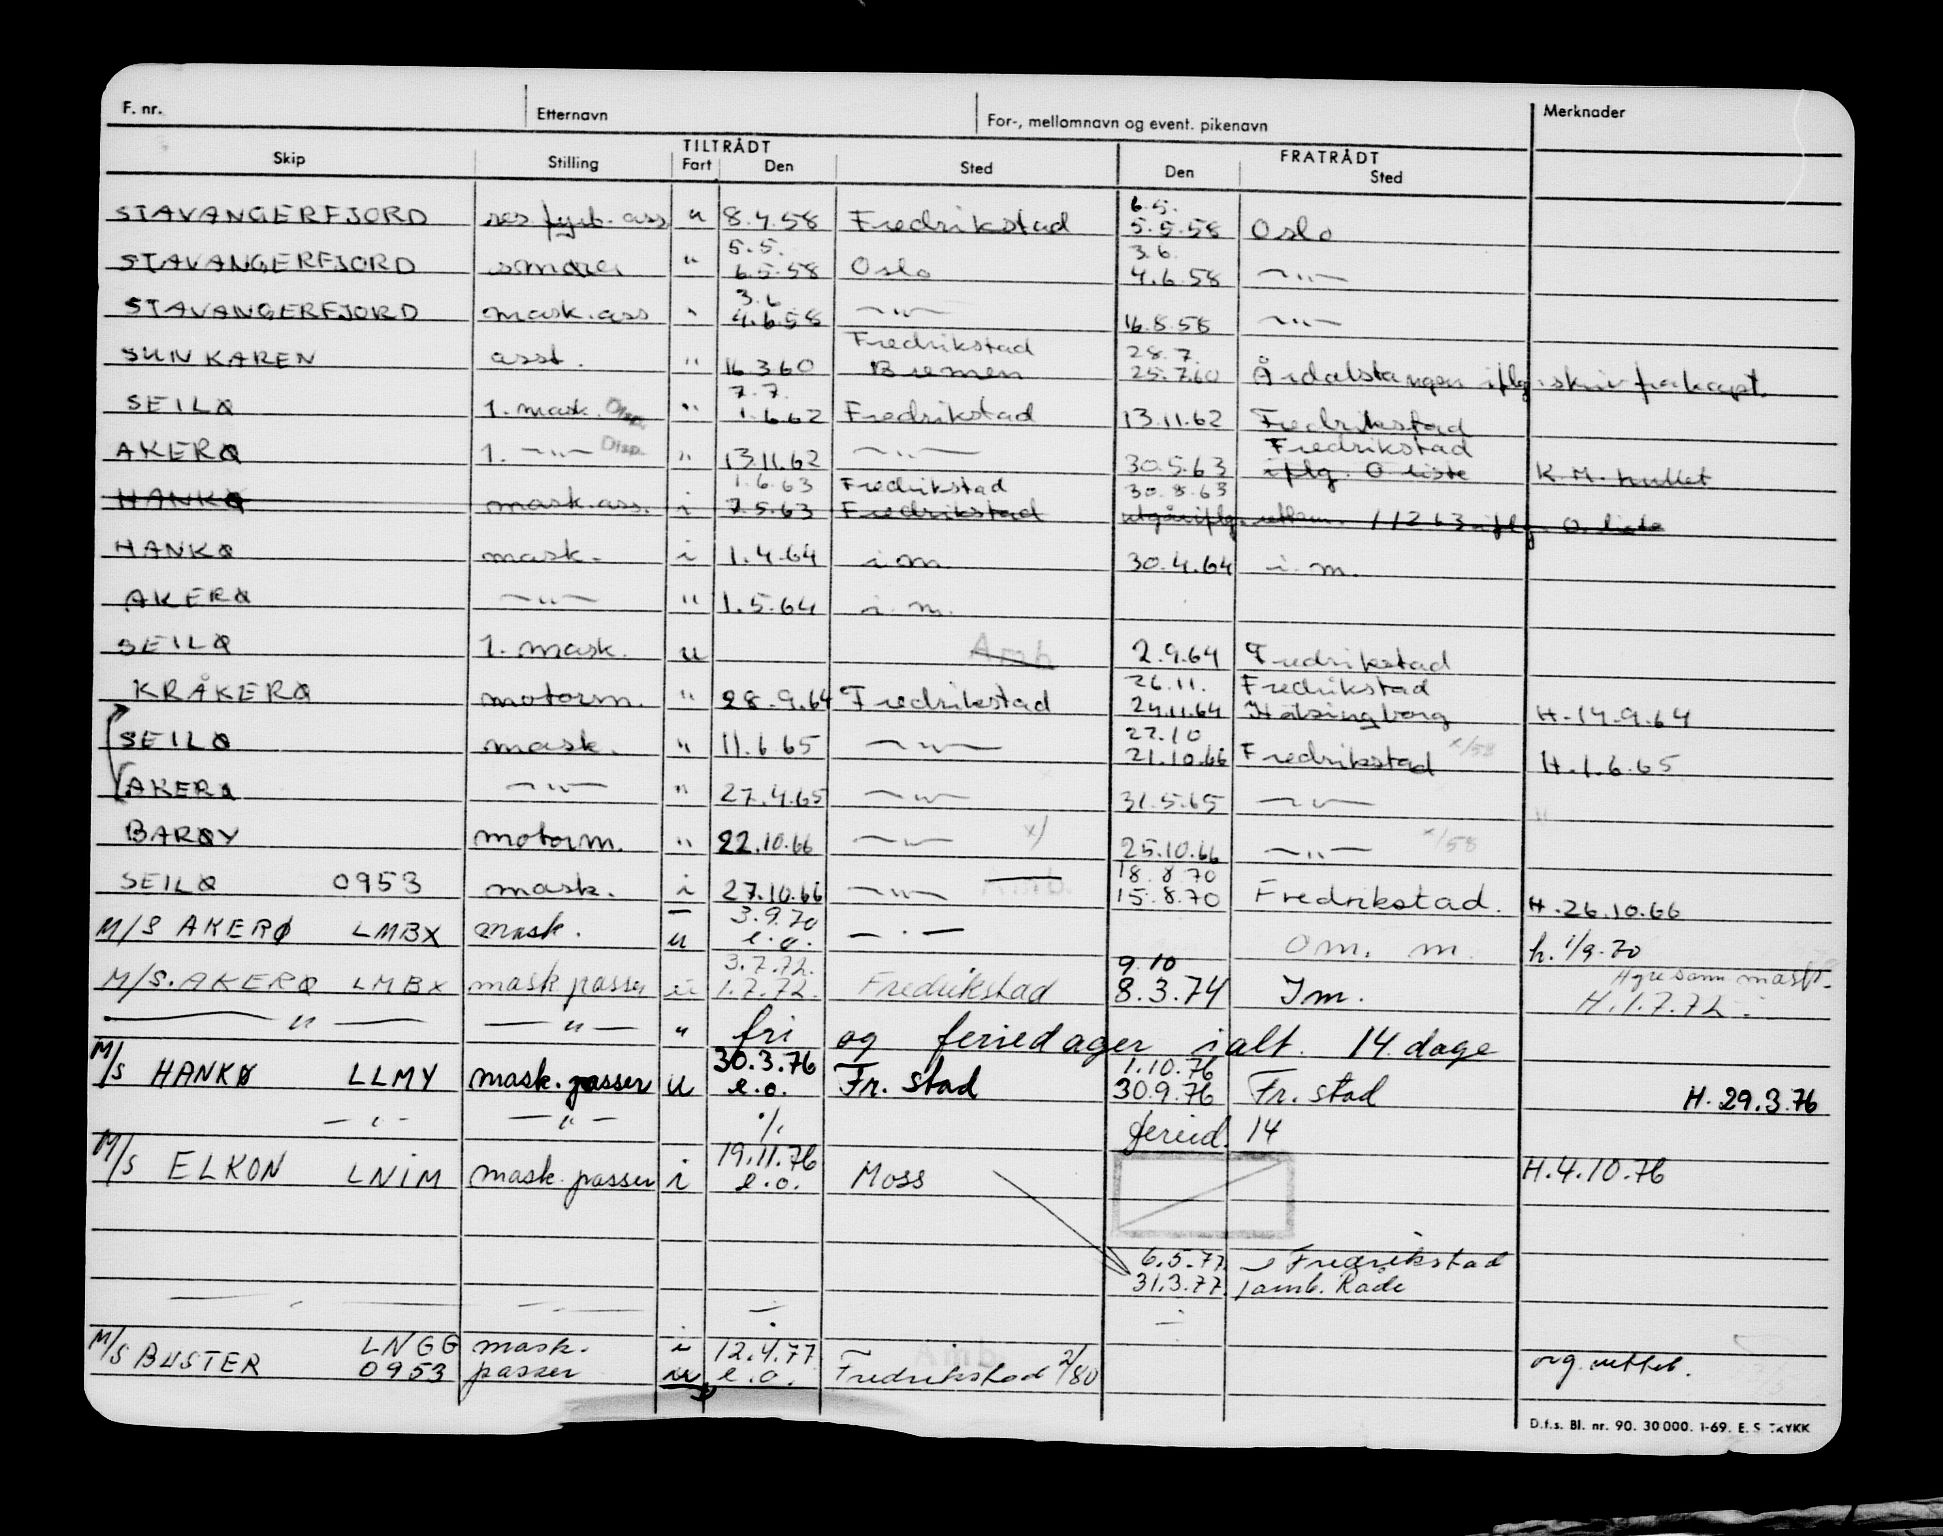 F. nr. Etternavn For-, mellomnavn og event. pikenavn Merknader
TILTRÅDT FRATRÅDT
Skip Stilling Fart Den Sted Den Sted
6.5.
STAVANGERFJORD res. fyrb. ass u 8.4.58 Fredrikstad 5.5.58 Oslo
5.5. 3.6.
STAVANGERFJORD smører " 6.5.58 Oslo 4.6.58 —"—
3.6
STAVANGERFJORD mask.ass " 4.6.58 —"— 16.8.58 —"—
Fredrikstad 28.7.
SUN KAREN asst. " 16.3.60 Bremen 25.7.60 Årdalstangen iflg. skriv fra kapt.
7.7.
SEILØ 1. mask. Disp. " 1.6.62 Fredrikstad 13.11.62 Fredrikstad
Fredrikstad
AKERØ 1. —"— Disp. " 13.11.62 —"— 30.5.63 iflg. O liste K.M. hullet
1.6.63 Fredrikstad 30.8.63
HANKØ mask.ass. i 7.5.63 Fredrikstad utgår iflg. O. liste
HANKØ mask. i 1.4.64 i.m. 30.4.64 i.m.
AKERØ —"— " 1.5.64 i.m.
SEILØ 1. mask. u Amb 2.9.64 Fredrikstad
26.11. Fredrikstad
KRÅKERØ motorm. " 28.9.64 Fredrikstad 24.11.64 Hälsingborg H.14.9.64
27.10
SEILØ mask. " 11.6.65 —"— 21.10.66 Fredrikstad x/58 H.1.6.65
AKERØ —"— " 27.4.65 —"— 31.5.65 —"—
BARØY motorm. " 22.10.66 —"— x) 25.10.66 —"— x/58
18.8.70
SEILØ 0953 mask. i 27.10.66 —"— Amb. 15.8.70 Fredrikstad. H.26.10.66
3.9.70
M/S AKERØ LMBX mask. u e.o. — · — Om. m. h. 1/9.70
3.7.72. 9.10 Hyre som masp.
M/S. AKERØ LMBX mask passer u 1.7.72. Fredrikstad 8.3.74 Im. H.1.7.72
—"— —"— " fri og feriedager ialt. 14 dage
30.3.76 1.10.76
M/S HANKØ LLMY mask. passer u e.o. Fr. stad 30.9.76 Fr. stad H. 29.3.76
—"— —"— % feried. 14
19.11.76
M/S ELKON LNIM mask. passer i e.o. Moss H.4.10.76
6.5.77. Fredrikstad
31.3.77. amb. Råde
M/S BUSTER LNGG mask. i 12.4.77. Amb.
0953 passer u e.o. Fredrikstad 2/80 org. uttel.
D.f.s. Bl. nr. 90. 30 000. 1-69. E. S. TRYKK